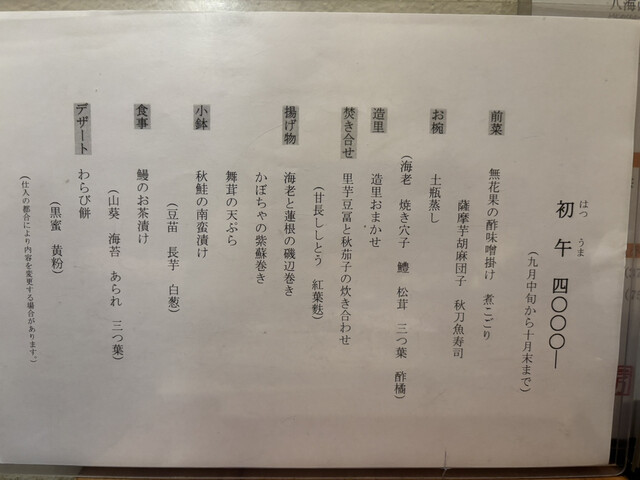 八海
初午 四〇〇〇―
はつ うま
(九月中旬から十月末まで)
前菜 無花果の酢味噌掛け 煮こごり
薩摩芋胡麻団子 秋刀魚寿司
お椀 土瓶蒸し
(海老 焼き穴子 鱧 松茸 三つ葉 酢橘)
造里 造里おまかせ
焚き合せ 里芋豆冨と秋茄子の炊き合わせ
(甘長ししとう 紅葉麩)
揚げ物 海老と蓮根の磯辺巻き
かぼちゃの紫蘇巻き
舞茸の天ぷら
小鉢 秋鮭の南蛮漬け
(豆苗 長芋 白葱)
食事 鰻のお茶漬け
(山葵 海苔 あられ 三つ葉)
デザート わらび餅
(黒蜜 黄粉)
(仕入の都合により内容を変更する場合があります。)